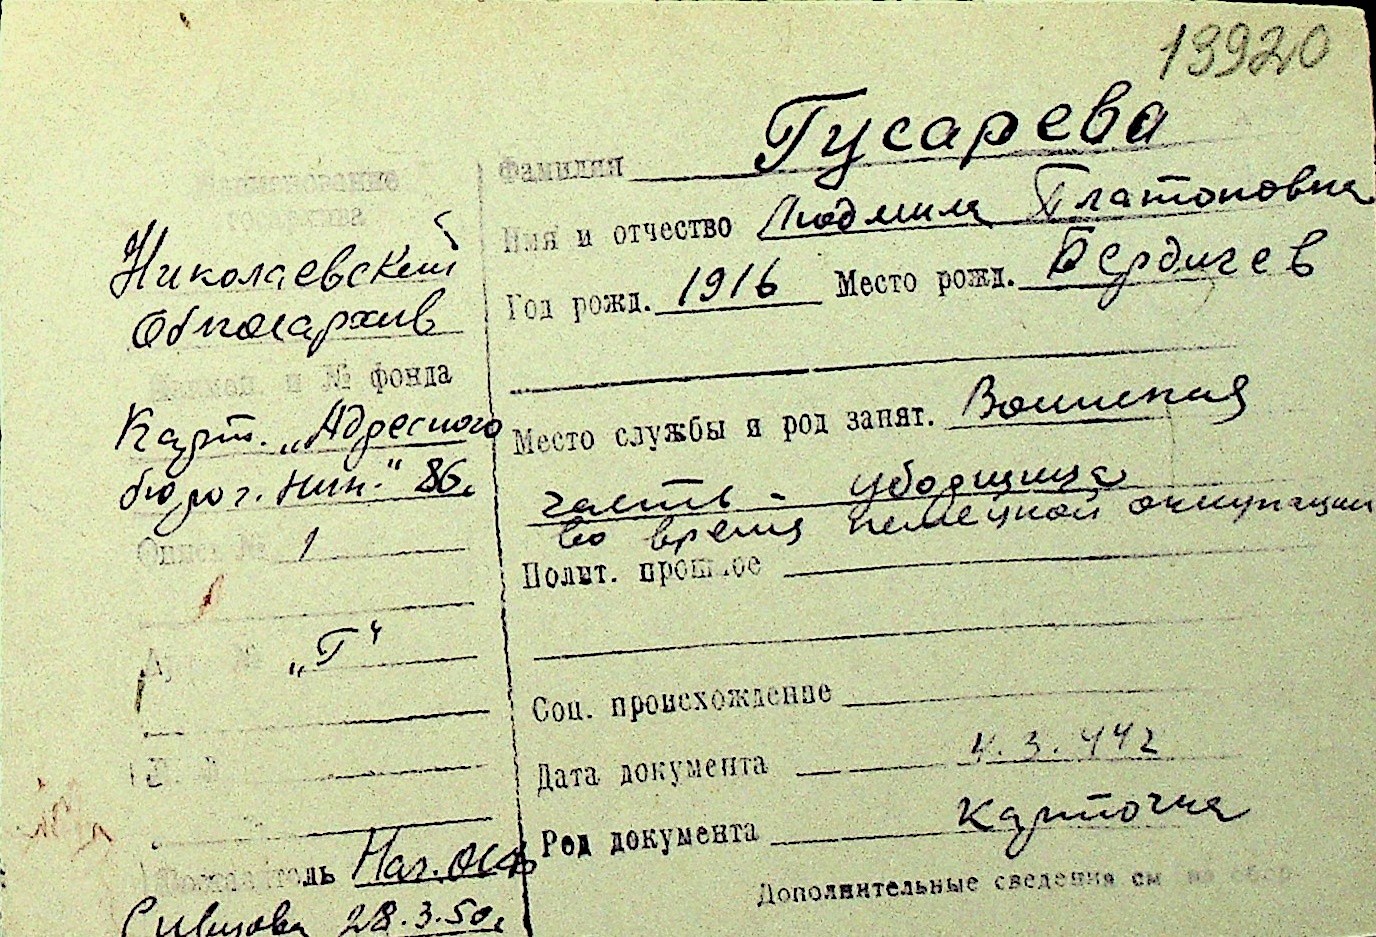 13920
Наименование
госархива
Николаевский
Облгосархив
Наимен. и № фонда
Карт. „Адресного
бюро г. Ник." 86.
Опись № 1
„Г"
Нач. ОСФ
28.3.50г.
Фамилия Гусарева
Имя и отчество Людмила Платоновна
Год рожд. 1916 Место рожд. Бердичев
Место службы и род занят. Воинская
часть - уборщица
во время немецкой оккупации
Полит. прошлое
Соц. происхождение
Дата документа 4.3.442
Род документа Карточка
Дополнительные сведения см на обор